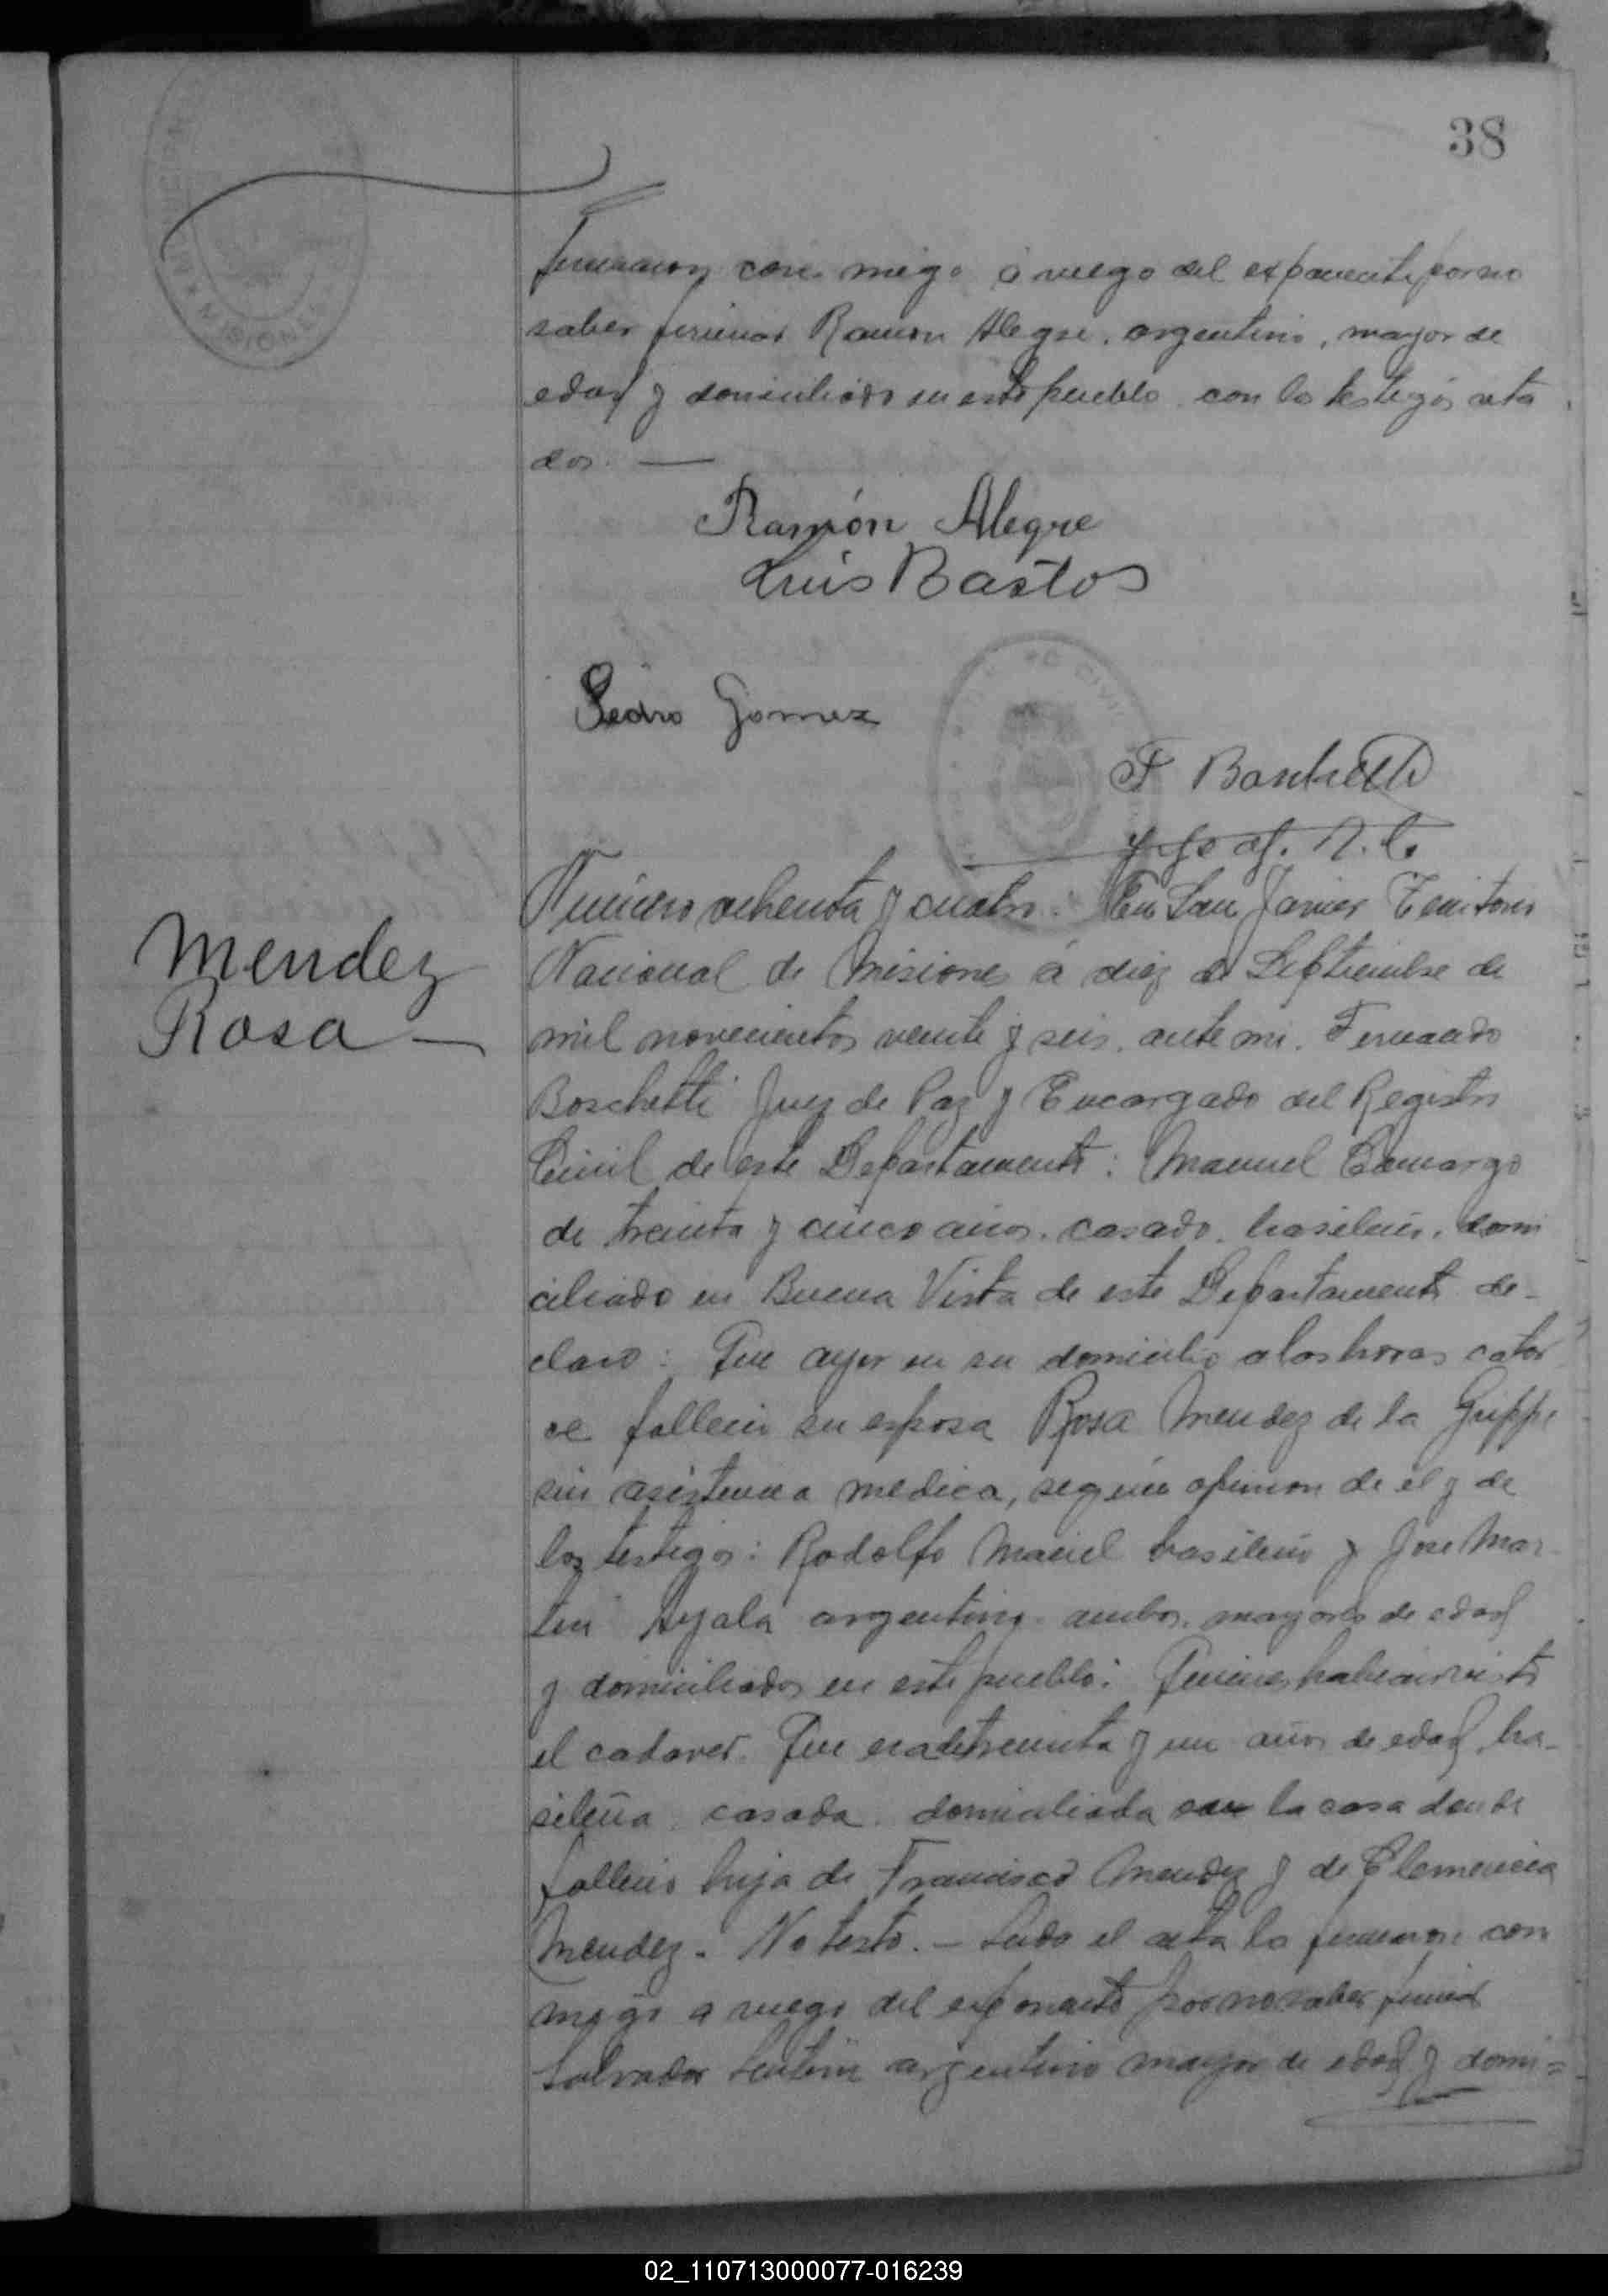 38
firmaron con migo á ruego del exponente por no
saber firmar Ramon Alegre, argentino, mayor de
edad y domiciliado en este pueblo con los testigos cita
dos. —
Ramón Alegre
Luis Bastos
Pedro Gomez
F Boschetti
MISIONES
Mendez
Rosa —
Número ochenta y cuatro. En San Javier Territorio
Nacional de Misiones á diez de Septiembre de
mil novecientos veinte y seis, ante mi, Fernando
Boschetti Juez de Paz y Encargado del Registro
Civil de este Departamento: Manuel Camargo
de treinta y cinco años, casado, brasilero, domi
ciliado en Buena Vista de este Departamento de-
claro: Que ayer en su domicilio a las horas cator
ce fallecio su esposa Rosa Mendez de la Grippe
sin asistencia medica, según opinion de el y de
los testigos: Rodolfo Maciel brasilero y Jose Mar-
tin Ayala argentino ambos mayores de edad
y domiciliados en este pueblo: Quienes habian visto
el cadaver. Que era de treinta y un años de edad, bra-
sileña casada, domiciliada en la casa donde
fallecio hija de Francisco Mendez y de Clemencia
Mendez. No testo. — Leido el acta la firmaron con
migo a ruego del exponente por no saber firmar
Salvador argentino mayor de edad y domi=
02_110713000077-016239